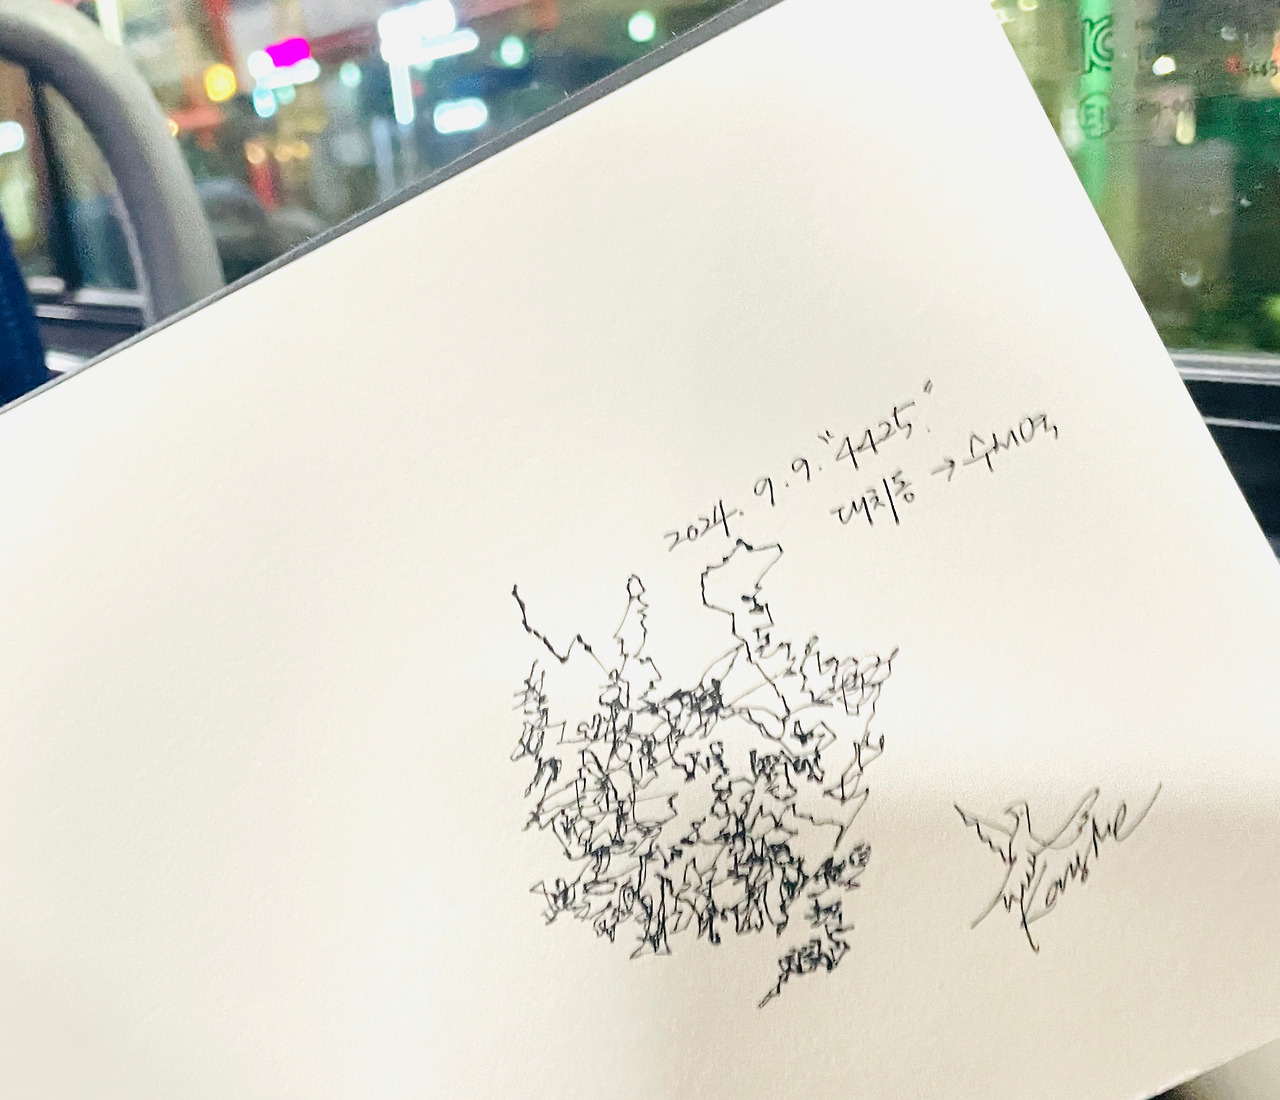 2024. 9. 9. "4425."
대치동 → 수서역
KC